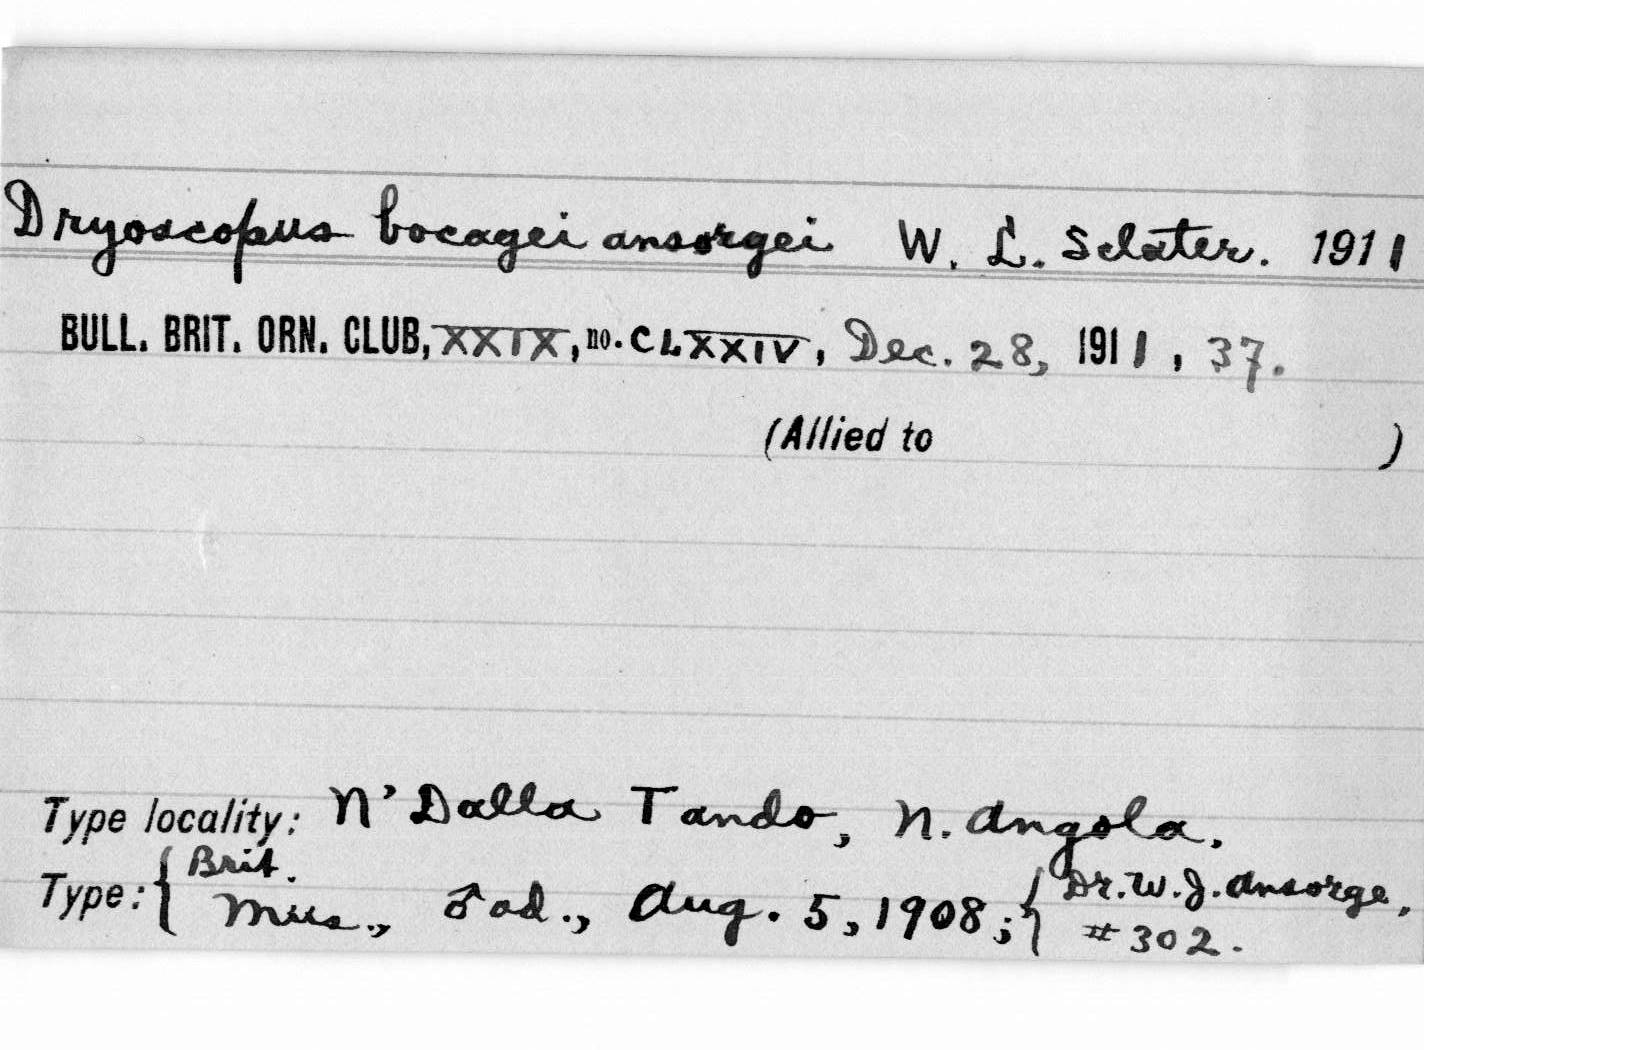 Dryoscopus bocagei ansorgei W. L. Sclater. 1911
BULL. BRIT. ORN. CLUB, XXIX, no. CLXXIV, Dec. 28, 1911, 37.
(Allied to )
Type locality: N'Dalla Tando, N. Angola.
Type: { Brit. Mus., ♂ ad., Aug. 5, 1908; { Dr. W. J. Ansorge, #302.